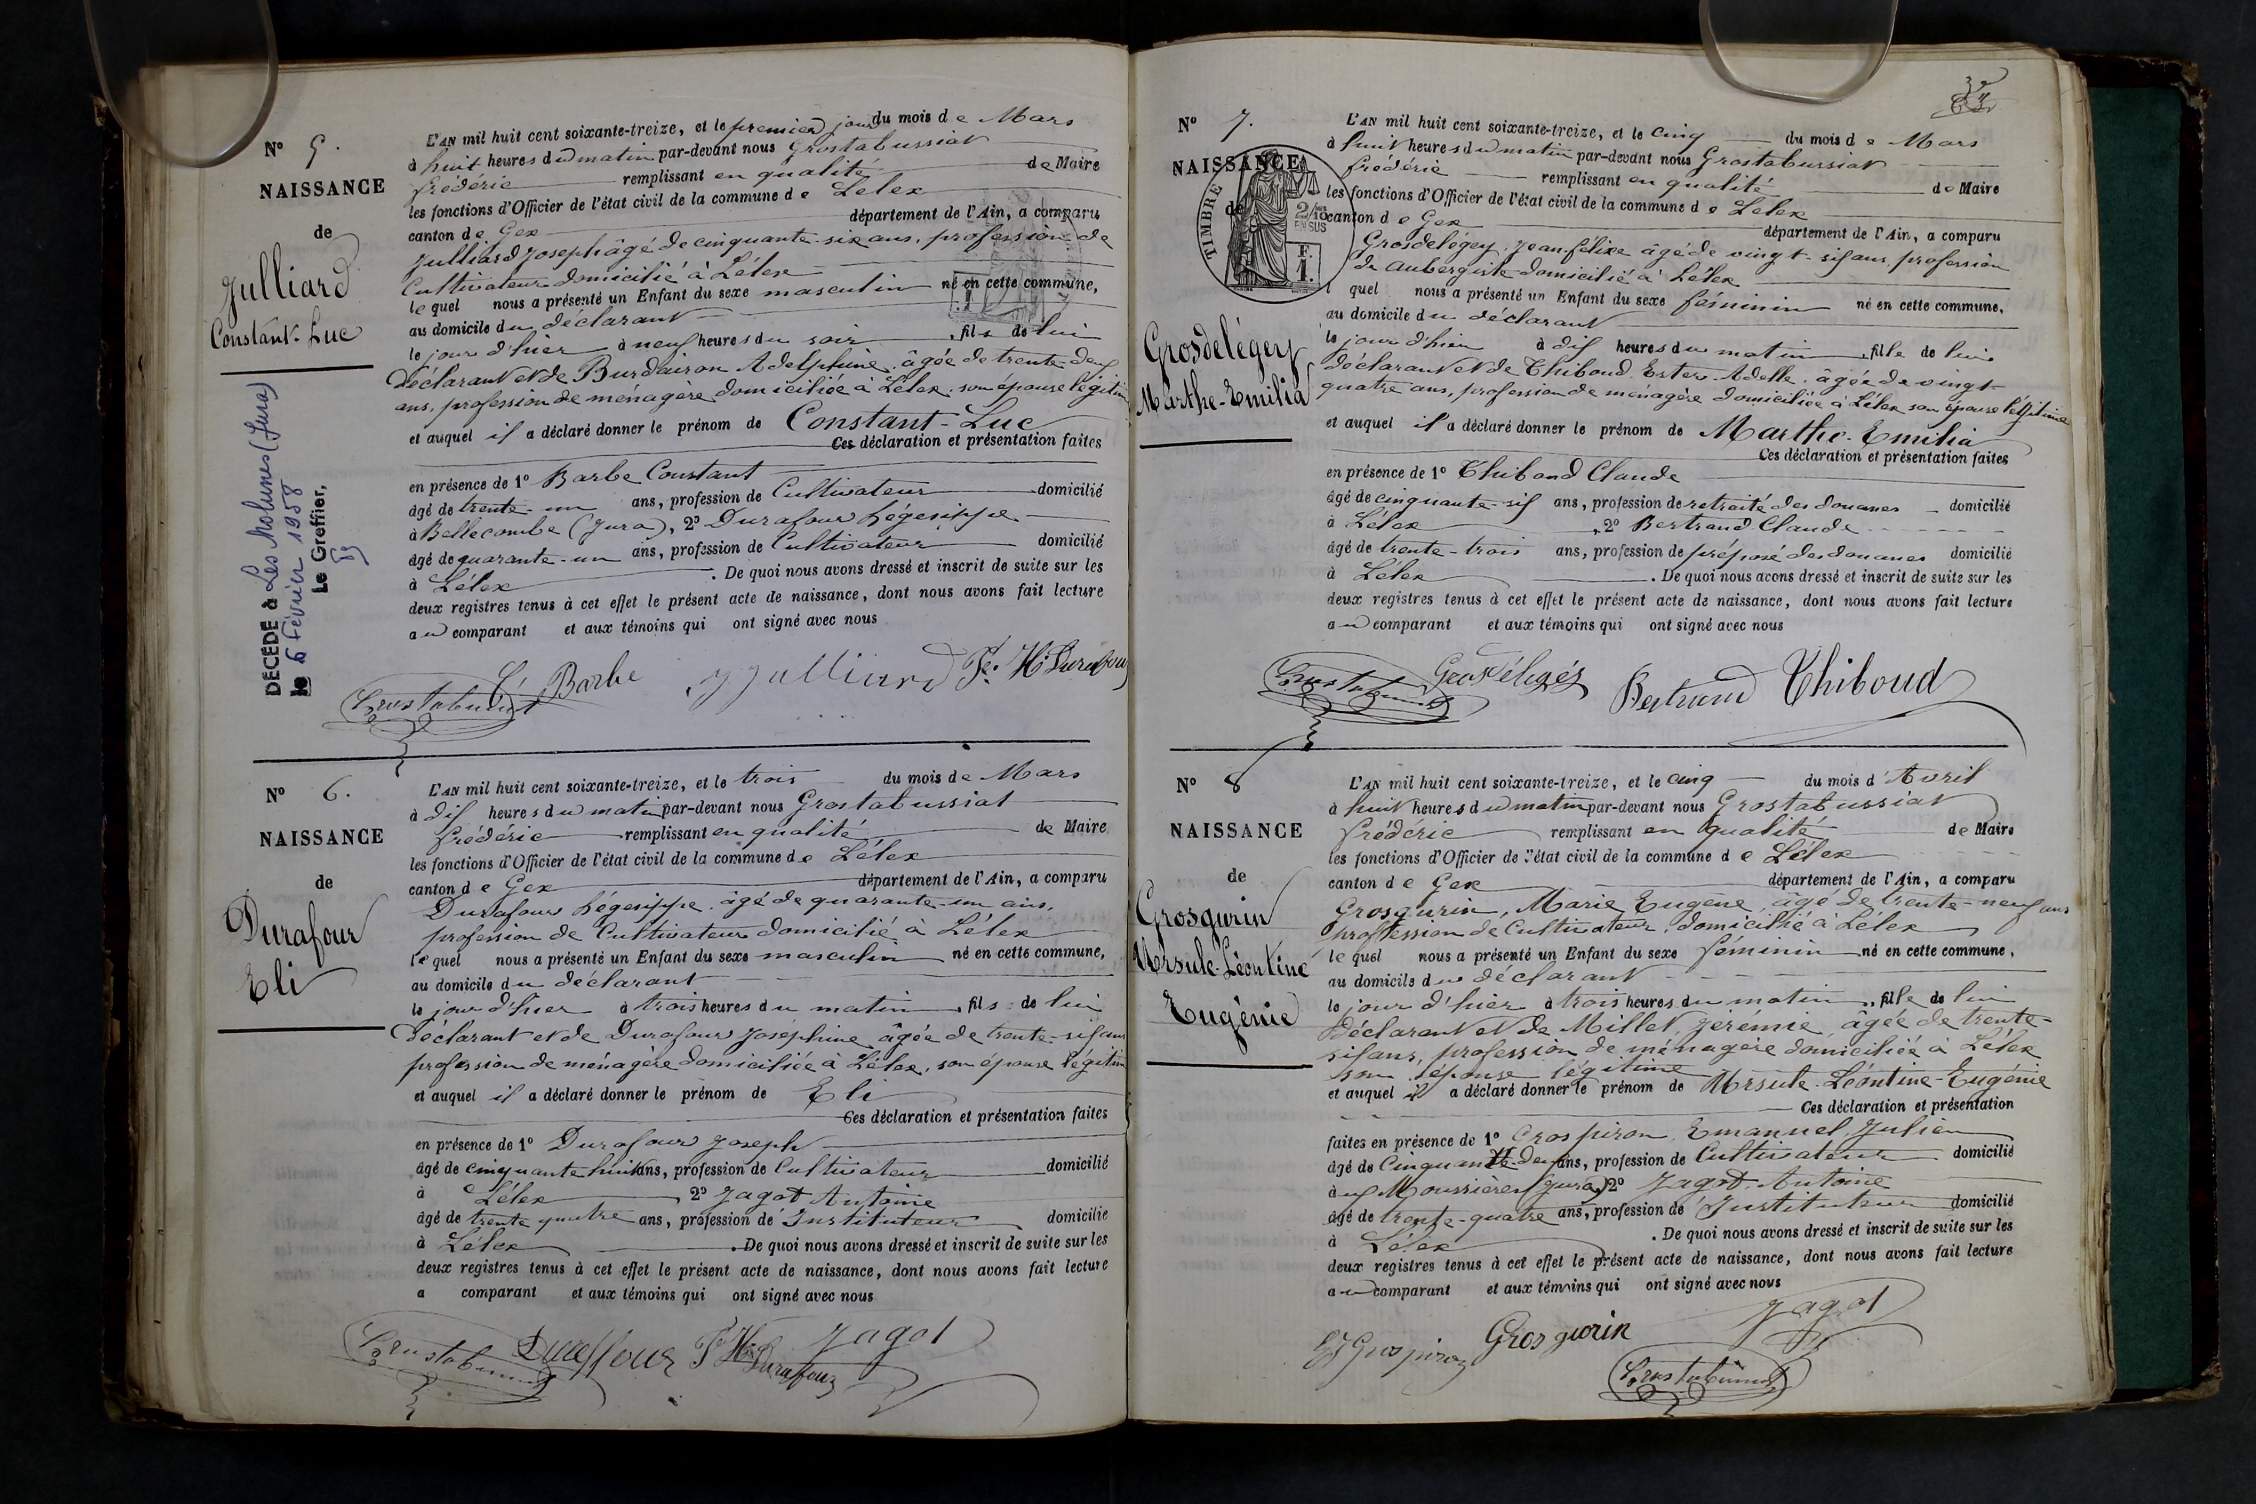 N° 5.
NAISSANCE
de
Julliard
Constant-Luc
DÉCÉDÉ à Les Molunes (Jura)
le 6 Février 1958
Le Greffier,
L'AN mil huit cent soixante-treize, et le premier jour du mois de Mars
à huit heures du matin par-devant nous Grostabussiat
frédéric remplissant en qualité de Maire
les fonctions d'Officier de l'état civil de la commune de Lélex
canton de Gex département de l'Ain, a comparu
Julliard Joseph âgé de cinquante-six ans, profession de
Cultivateur domicilié à Lélex
lequel nous a présenté un Enfant du sexe masculin né en cette commune,
au domicile du déclarant
le jour d'hier à neuf heures du soir, fils de lui
déclarant et de Burdairon Adelphine, âgée de trente-deux
ans, profession de ménagère domiciliée à Lélex, son épouse légitime
et auquel il a déclaré donner le prénom de Constant-Luc
Ces déclaration et présentation faites
en présence de 1° Barbe Constant
âgé de trente-un ans, profession de Cultivateur domicilié
à Bellecombe (Jura), 2° Durafour hégesippe
âgé de quarante-un ans, profession de Cultivateur domicilié
à Lélex. De quoi nous avons dressé et inscrit de suite sur les
deux registres tenus à cet effet le présent acte de naissance, dont nous avons fait lecture
au comparant et aux témoins qui ont signé avec nous
Grostabussiat C. Barbe J Julliard Fs. H. Durafour
N° 6.
NAISSANCE
de
Durafour
Eli
L'AN mil huit cent soixante-treize, et le trois du mois de Mars
à dix heures du matin par-devant nous Grostabussiat
frédéric remplissant en qualité de Maire
les fonctions d'Officier de l'état civil de la commune de Lélex
canton de Gex département de l'Ain, a comparu
Durafour hégesippe, âgé de quarante-un ans,
profession de Cultivateur domicilié à Lélex
lequel nous a présenté un Enfant du sexe masculin né en cette commune,
au domicile du déclarant
le jour d'hier à trois heures du matin, fils de lui
déclarant et de Durafour Josephine âgée de trente-six ans
profession de ménagère domiciliée à Lélex, son épouse légitime
et auquel il a déclaré donner le prénom de Eli
Ces déclaration et présentation faites
en présence de 1° Durafour Joseph
âgé de cinquante huit ans, profession de Cultivateur domicilié
à Lélex 2° Jagot Antoine
âgé de trente quatre ans, profession de Instituteur domicilié
à Lélex. De quoi nous avons dressé et inscrit de suite sur les
deux registres tenus à cet effet le présent acte de naissance, dont nous avons fait lecture
a comparant et aux témoins qui ont signé avec nous
Grostabussiat Duraffour Fs Hte Duraffour Jagot
N° 7.
NAISSANCE
de
TIMBRE
2/10
EN SUS
F.
1.
Grosdelégey
Marthe-Emilia
L'AN mil huit cent soixante-treize, et le cinq du mois de Mars
à huit heures du matin par-devant nous Grostabussiat
frédéric remplissant en qualité de Maire
les fonctions d'Officier de l'état civil de la commune de Lélex
canton de Gex département de l'Ain, a comparu
Grosdelégey, Jean-félixe âgé de vingt-six ans, profession
de aubergiste domicilié à Lélex
l quel nous a présenté un Enfant du sexe féminin né en cette commune,
au domicile du déclarant
le jour d'hier à dix heures du matin, fille de lui
déclarant et de Thiboud Ester Adelle, âgée de vingt-
quatre ans, profession de ménagère domiciliée à Lélex son épouse légitime
et auquel il a déclaré donner le prénom de Marthe-Emilia
Ces déclaration et présentation faites
en présence de 1° Thiboud Claude
âgé de cinquante-six ans, profession de retraité des douanes domicilié
à Lélex, 2° Bertrand Claude
âgé de trente-trois ans, profession de préposé des douanes domicilié
à Lélex. De quoi nous avons dressé et inscrit de suite sur les
deux registres tenus à cet effet le présent acte de naissance, dont nous avons fait lecture
au comparant et aux témoins qui ont signé avec nous
Grostabussiat Grosdélegés Bertrand Thiboud
N° 8
NAISSANCE
de
Grosgurin
Ursule-Léontine
Eugénie
L'AN mil huit cent soixante-treize, et le cinq du mois d'Avril
à huit heures du matin par-devant nous Grostabussiat
frédéric remplissant en qualité de Maire
les fonctions d'Officier de l'état civil de la commune de Lélex
canton de Gex département de l'Ain, a comparu
Grosgurin, Marie Eugène, âgé de trente-neuf ans
profession de Cultivateur, domicilié à Lélex
lequel nous a présenté un Enfant du sexe féminin né en cette commune,
au domicile du déclarant
le jour d'hier à trois heures du matin, fille de lui
déclarant et de Millet, Jérémie, âgée de trente-
six ans, profession de ménagère domiciliée à Lélex
son épouse légitime
et auquel il a déclaré donner le prénom de Ursule-Léontine-Eugénie
Ces déclaration et présentation
faites en présence de 1° Grospiron Emanuel Julien
âgé de Cinquante-deux ans, profession de Cultivateur domicilié
aux Moussières (Jura) 2° Jagot Antoine
âgé de trente-quatre ans, profession de Instituteur domicilié
à Lélex. De quoi nous avons dressé et inscrit de suite sur les
deux registres tenus à cet effet le présent acte de naissance, dont nous avons fait lecture
au comparant et aux témoins qui ont signé avec nous
EJ Grospiron Grosgurin Jagot
Grostabussiat